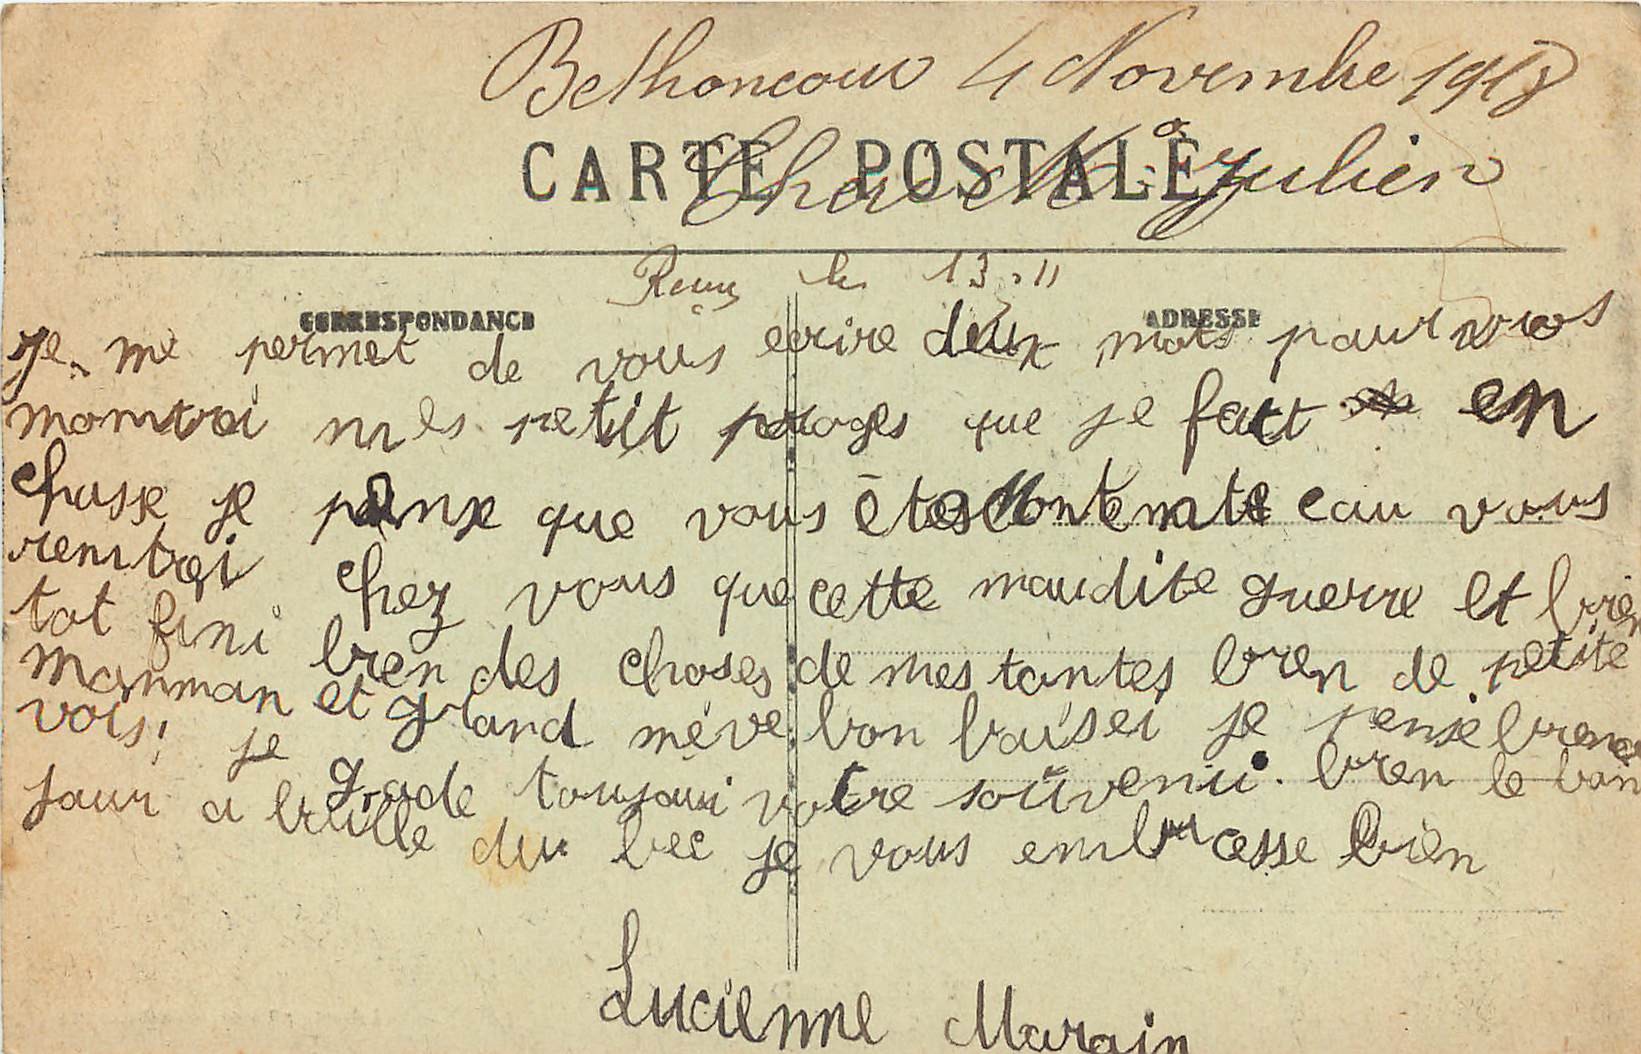 Bethoncour 4 Novembre 1918
CARTE POSTALE
Cher Mr Julien
Reçu le 13.11
CORRESPONDANCE
ADRESSE
je me permet de vous ecrire deux mots pour vous
montrai mes petit que je fait en
chasse je panse que vous êtes contente cau vous
rentrai chez vous que cette maudite guerre et bien
tot fini bien des choses de mes tantes bien de petite
manman et grand mère bon baiser je pense bien a
vois; je grade toujaui votre souvenir. bien le bon
jour a brulle du bec je vous embracesse bien
Lucienne Marain